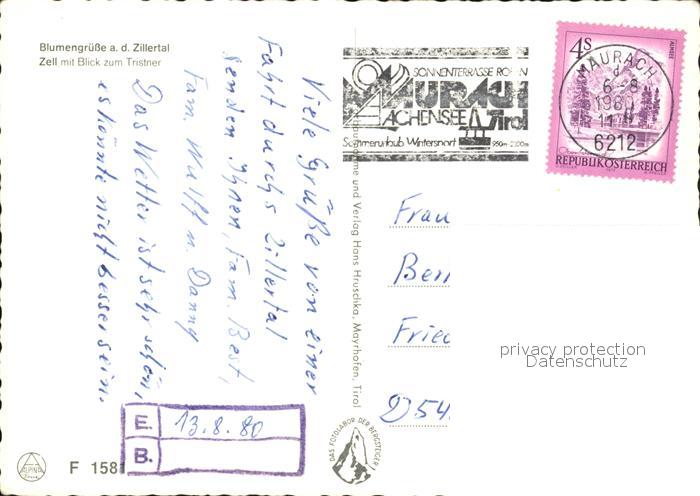 Blumengrüße a. d. Zillertal
Zell mit Blick zum Tristner
Viele Grüße von einer
Fahrt durchs Zillertal
senden Ihnen, Fam. Best,
Fam. Wulff u. Danny
Das Wetter ist sehr schön,
es könnte nicht besser sein.
SONNENTERRASSE ROFAN
MAURACH
ACHENSEE Tirol
Sommerurlaub Wintersport 950m-2100m
4S
ALMSEE
REPUBLIK ÖSTERREICH
MAURACH
6.-8
1980
6212
und Verlag Hans Hruschka, Mayrhofen, Tirol
Frau
Ben
Fried
D 54
privacy protection
Datenschutz
E. 13.8.80
B.
DAS FOTOLABOR DER BERGSTEIGER
ALPINA
F 1581